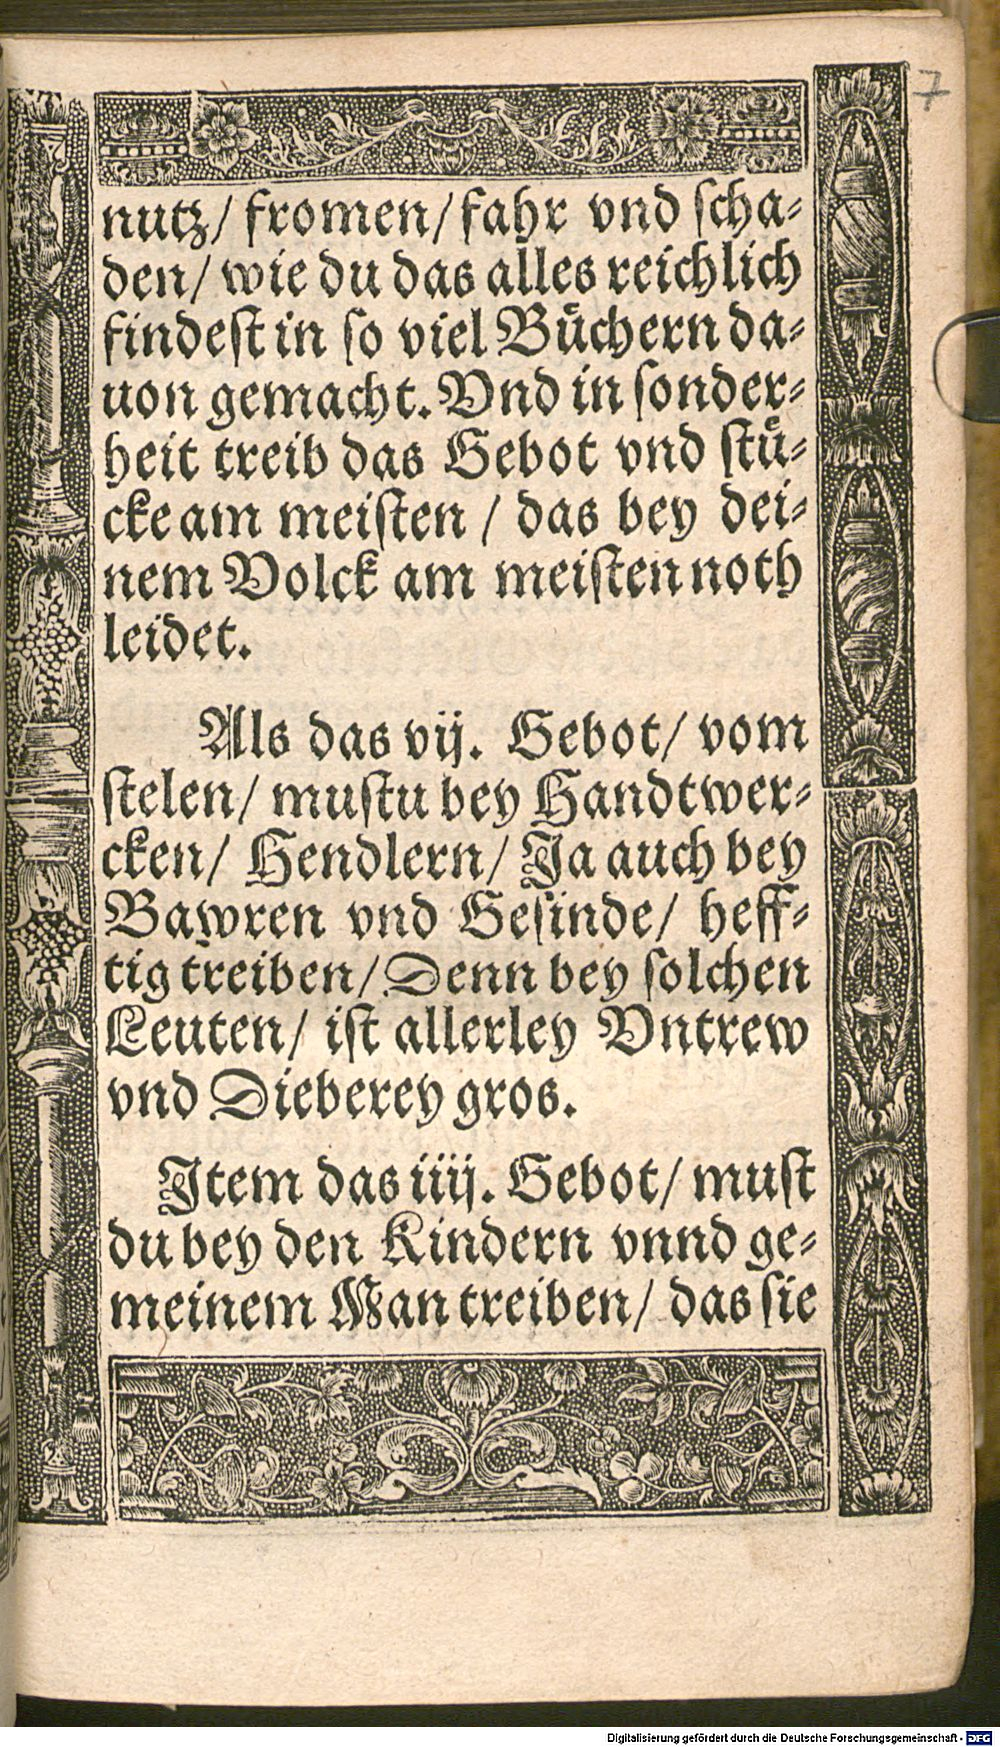 7
nutz/ fromen/ fahr vnd ſcha⸗
den/ wie du das alles reichlich
findeſt in ſo viel Buͤchern da⸗
uon gemacht. Vnd in ſonder⸗
heit treib das Gebot vnd ſtuͤ⸗
cke am meiſten / das bey dei⸗
nem Volck am meiſten noth
leidet.
Als das vij. Gebot/ vom
ſtelen/ muſtu bey Handtwer⸗
cken/ Hendlern/ Ja auch bey
Bawren vnd Geſinde/ heff⸗
tig treiben/ Denn bey ſolchen
Leuten/ iſt allerley Vntrew
vnd Dieberey gros.
Item das iiij. Gebot/ muſt
du bey den Kindern vnnd ge⸗
meinem Man treiben/ das ſie
Digitalisierung gefördert durch die Deutsche Forschungsgemeinschaft - DFG